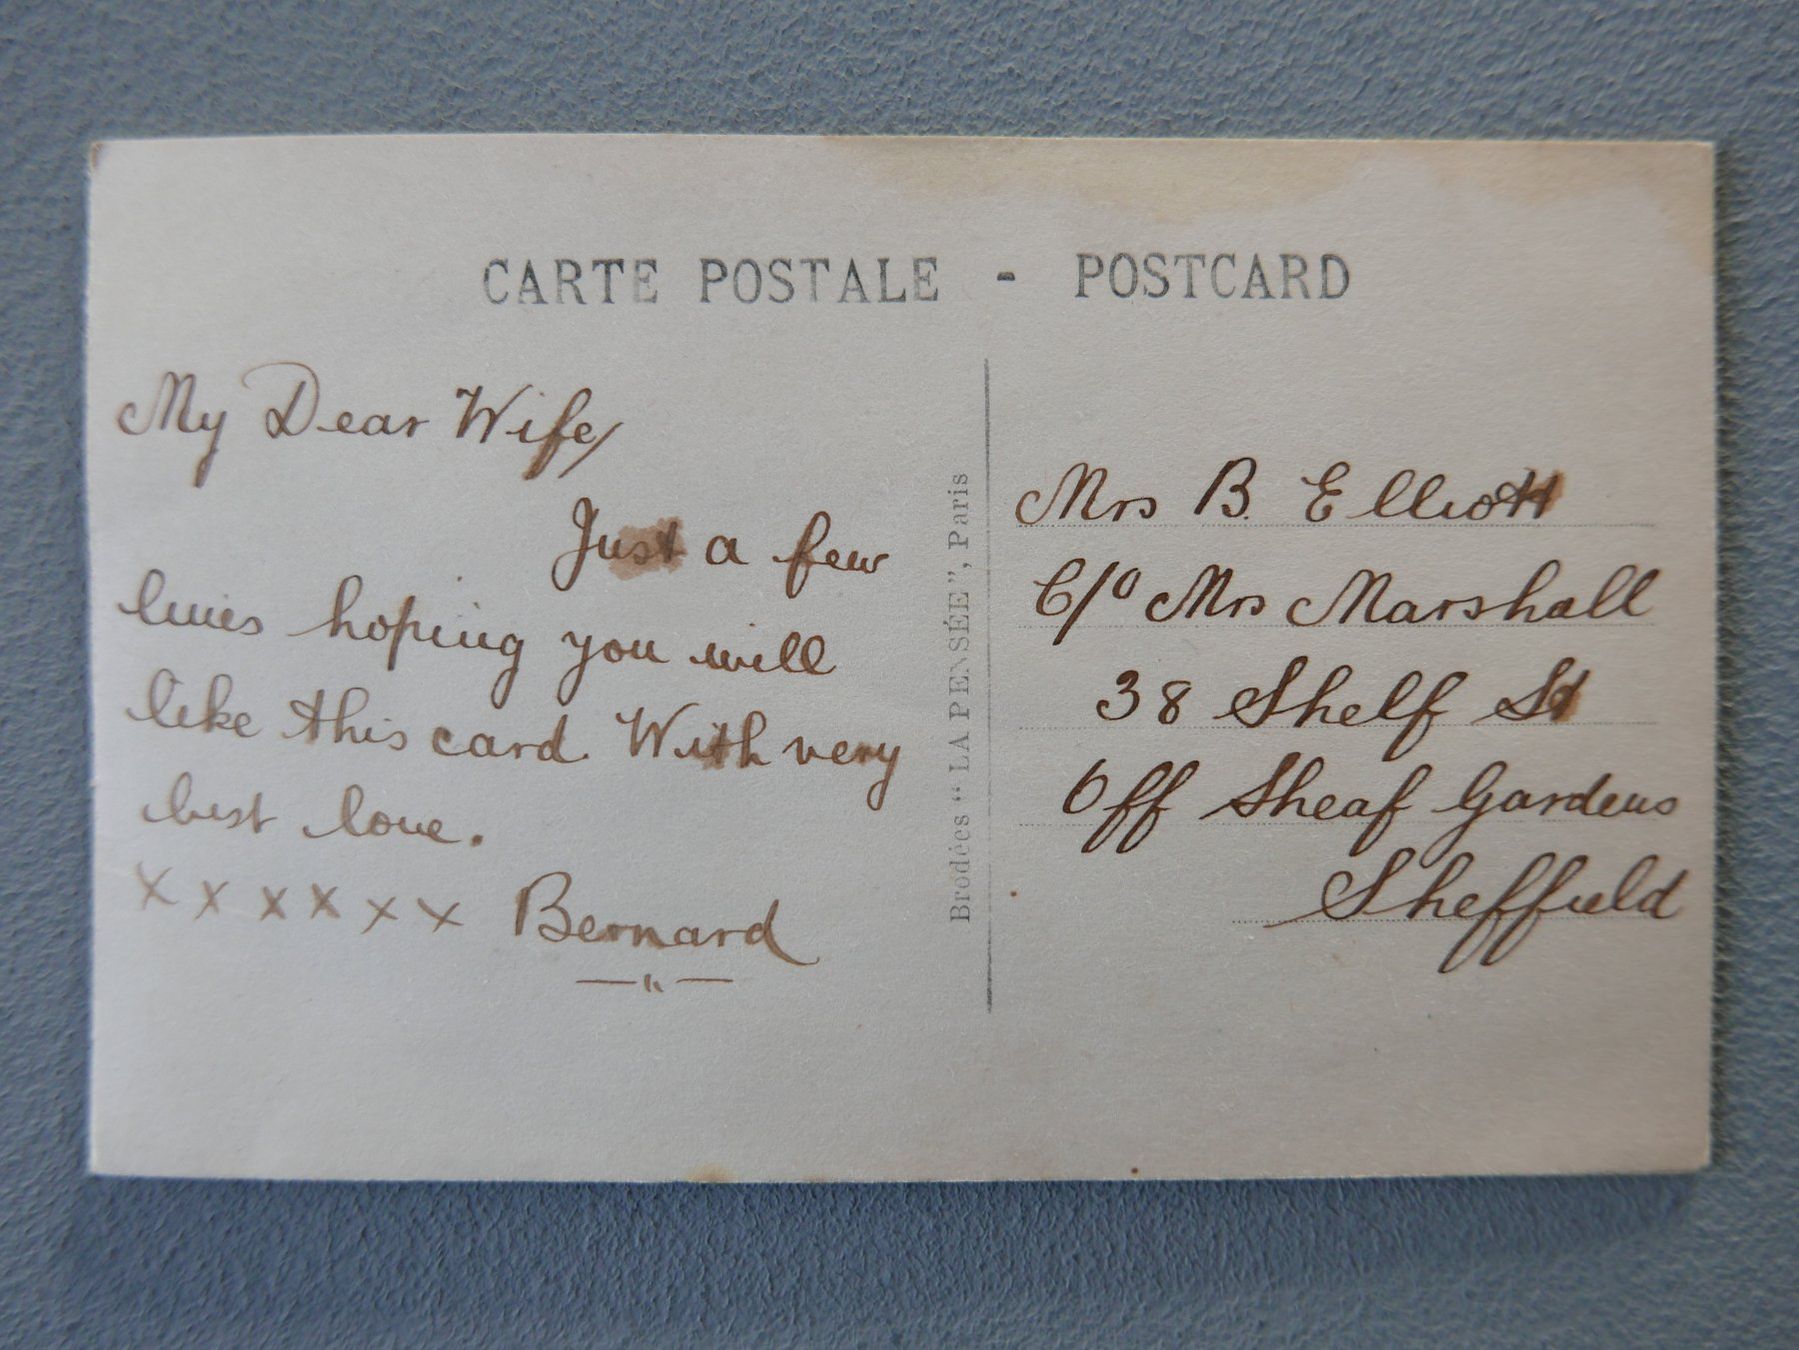 CARTE POSTALE - POSTCARD
My Dear Wife,
Just a few
lines hoping you will
like this card. With very
best love.
x x x x x x Bernard
Brodées "LA PENSÉE", Paris
Mrs B. Elliott
C/o Mrs Marshall
38 Shelf St
Off Sheaf Gardens
Sheffield